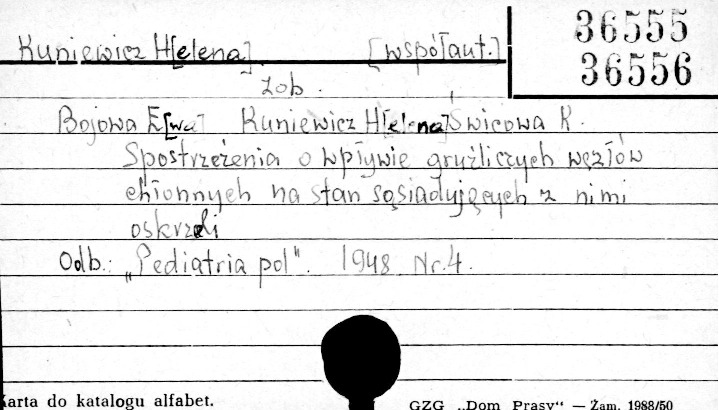 36555
36556
Kuniewicz H[elena] [współaut.]
zob.
Bojowa E[wa] Kuniewicz H[elena] Świcowa K.
Spostrzeżenia o wpływie gruźliczych węzłów
chłonnych na stan sąsiadujących z nimi
oskrzeli
Odb.: „Pediatria pol". 1948. Nr.4.
Karta do katalogu alfabet.
GZG „Dom Prasy“ — Zam. 1988/50